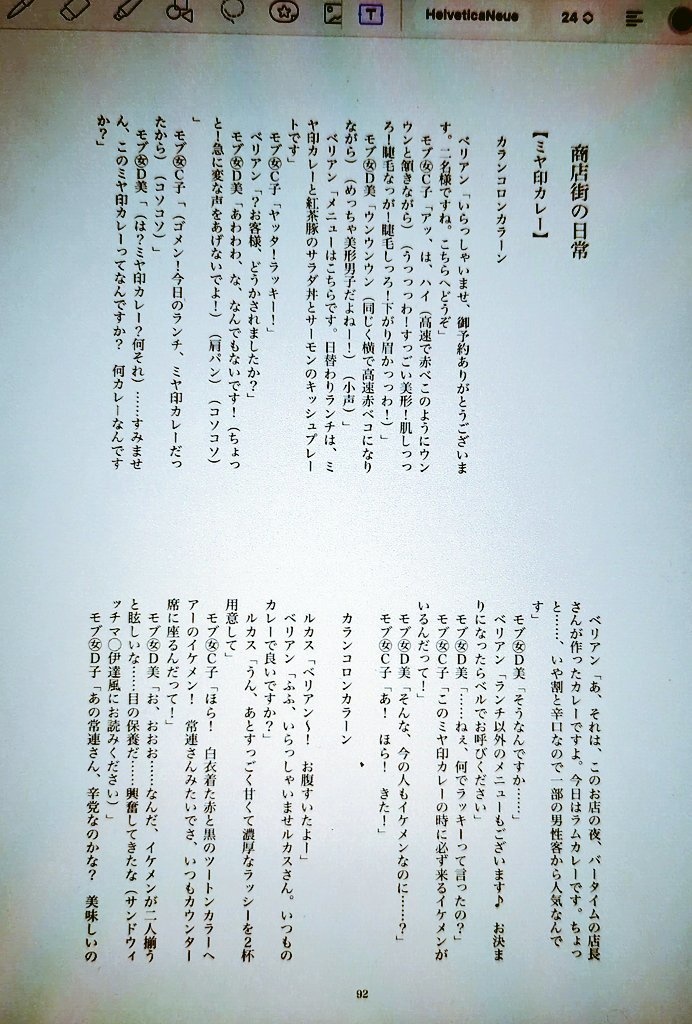 HelveticaNeue
24
商店街の日常
【ミヤ印カレー】
カランコロンカラーン
ベリアン「いらっしゃいませ、御予約ありがとうございま
す。二名様ですね。こちらへどうぞ」
モブ㊛C子「アッ、は、ハイ(高速で赤べこのようにウン
ウンと頷きながら)(うっっっわ!すっごい美形!肌しっっ
ろ!睫毛なっが!睫毛しっろ!下がり眉かっっわ!)」
モブ㊛D美「ウンウンウン(同じく横で高速赤ベコになり
ながら)(めっちゃ美形男子だよねー!)(小声)」
ベリアン「メニューはこちらです。日替わりランチは、ミ
ヤ印カレーと紅茶豚のサラダ丼とサーモンのキッシュプレー
トです」
モブ㊛C子「ヤッタ!ラッキー!」
ベリアン「?お客様、どうかされましたか?」
モブ㊛D美「あわわわ、な、なんでもないです!(ちょっ
と!急に変な声をあげないでよ!)(肩パン)(コソコソ)
」
モブ㊛C子「(ゴメン!今日のランチ、ミヤ印カレーだっ
たから)(コソコソ)」
モブ㊛D美「(は?ミヤ印カレー?何それ)……すみませ
ん、このミヤ印カレーってなんですか? 何カレーなんです
か?」
ベリアン「あ、それは、このお店の夜、バータイムの店長
さんが作ったカレーですよ。今日はラムカレーです。ちょっ
と……、いや割と辛口なので一部の男性客から人気なんで
す」
モブ㊛D美「そうなんですか……」
ベリアン「ランチ以外のメニューもございます♪ お決ま
りになったらベルでお呼びください」
モブ㊛D美「……ねぇ、何でラッキーって言ったの?」
モブ㊛C子「このミヤ印カレーの時に必ず来るイケメンが
いるんだって!」
モブ㊛D美「そんな、今の人もイケメンなのに……?」
モブ㊛C子「あ! ほら! きた!」
カランコロンカラーン
ルカス「ベリアン〜! お腹すいたよー」
ベリアン「ふふ、いらっしゃいませルカスさん。いつもの
カレーで良いですか?」
ルカス「うん、あとすっごく甘くて濃厚なラッシーを2杯
用意して」
モブ㊛C子「ほら! 白衣着た赤と黒のツートンカラーヘ
アーのイケメン! 常連さんみたいでさ、いつもカウンター
席に座るんだって!」
モブ㊛D美「お、おおお……なんだ、イケメンが二人揃う
と眩しいな……目の保養だ……興奮してきたな(サンドウィ
ッチマ◯伊達風にお読みください)」
モブ㊛D子「あの常連さん、辛党なのかな? 美味しいの
92